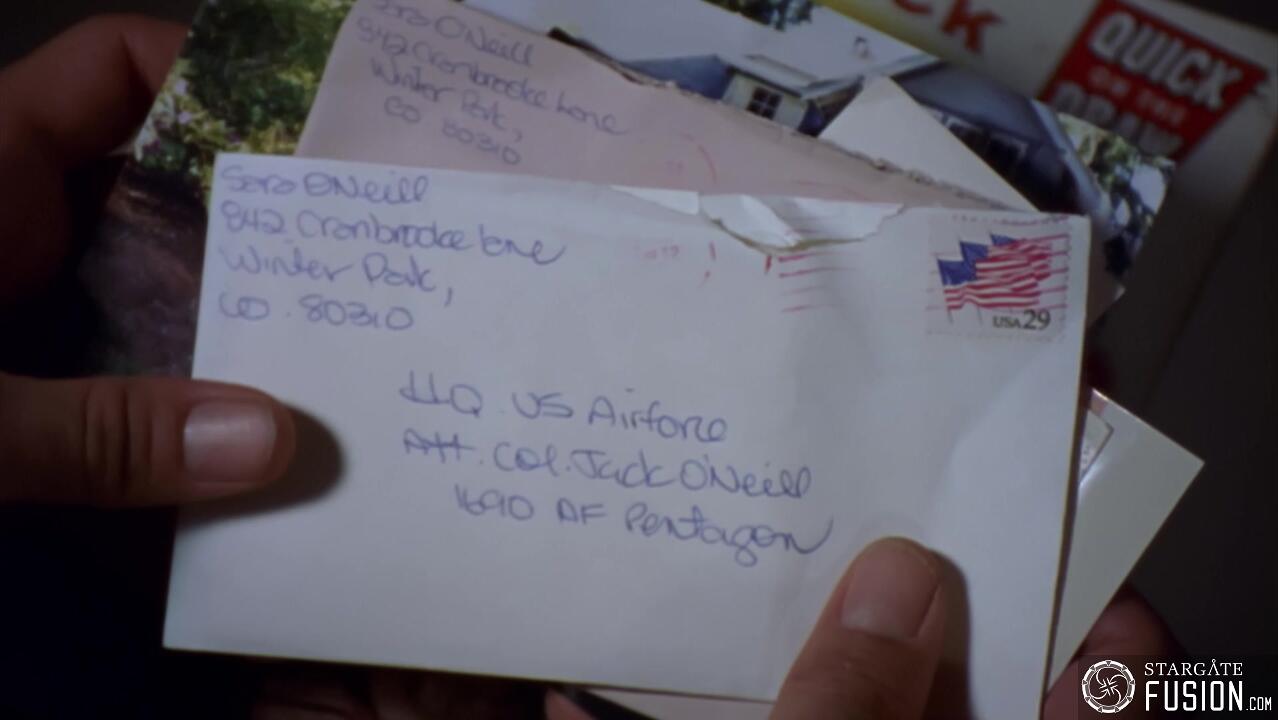 CK
QUICK
ON THE
DRAW
Sara O'Neill
842 Cranbrooke Lane
Winter Park,
CO 80310
Sara O'Neill
842 Cranbrooke Lane
Winter Park,
CO. 80310
USA 29
HQ. US Airforce
Att. Col. Jack O'Neill
1690 AF Pentagon
STARGATE
FUSION.COM